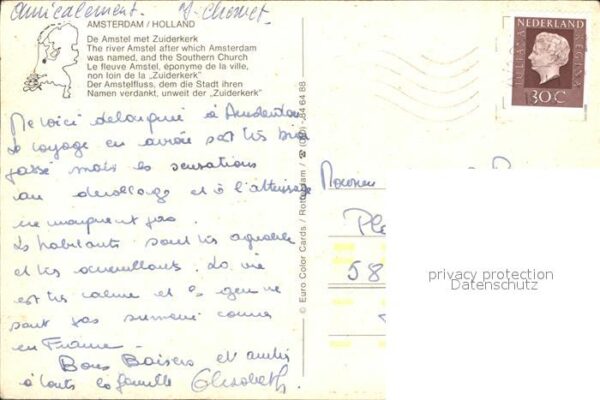 Amicalement. J. Chomet
AMSTERDAM / HOLLAND
De Amstel met Zuiderkerk
The river Amstel after which Amsterdam
was named, and the Southern Church
Le fleuve Amstel, éponyme de la ville,
non loin de la „Zuiderkerk"
Der Amstelfluss, dem die Stadt ihren
Namen verdankt, unweit der „Zuiderkerk"
Me voici débarquée à Amsterdam
Le voyage en avion s'est très bien
passé mais les sensations
au décollage et à l'atterissage
ne manquent pas.
Les habitants sont très agréables
et très accueillants. La vie
est très calme et les gens ne
sont pas surmené comme
en France.
Bons Baisers et amitiés
à toute la famille Elisabeth
© Euro Color Cards / Rotterdam / ☎ (010)-84 64 88
NEDERLAND
JULIANA REGINA
30 C
Monsieur
58
privacy protection
Datenschutz